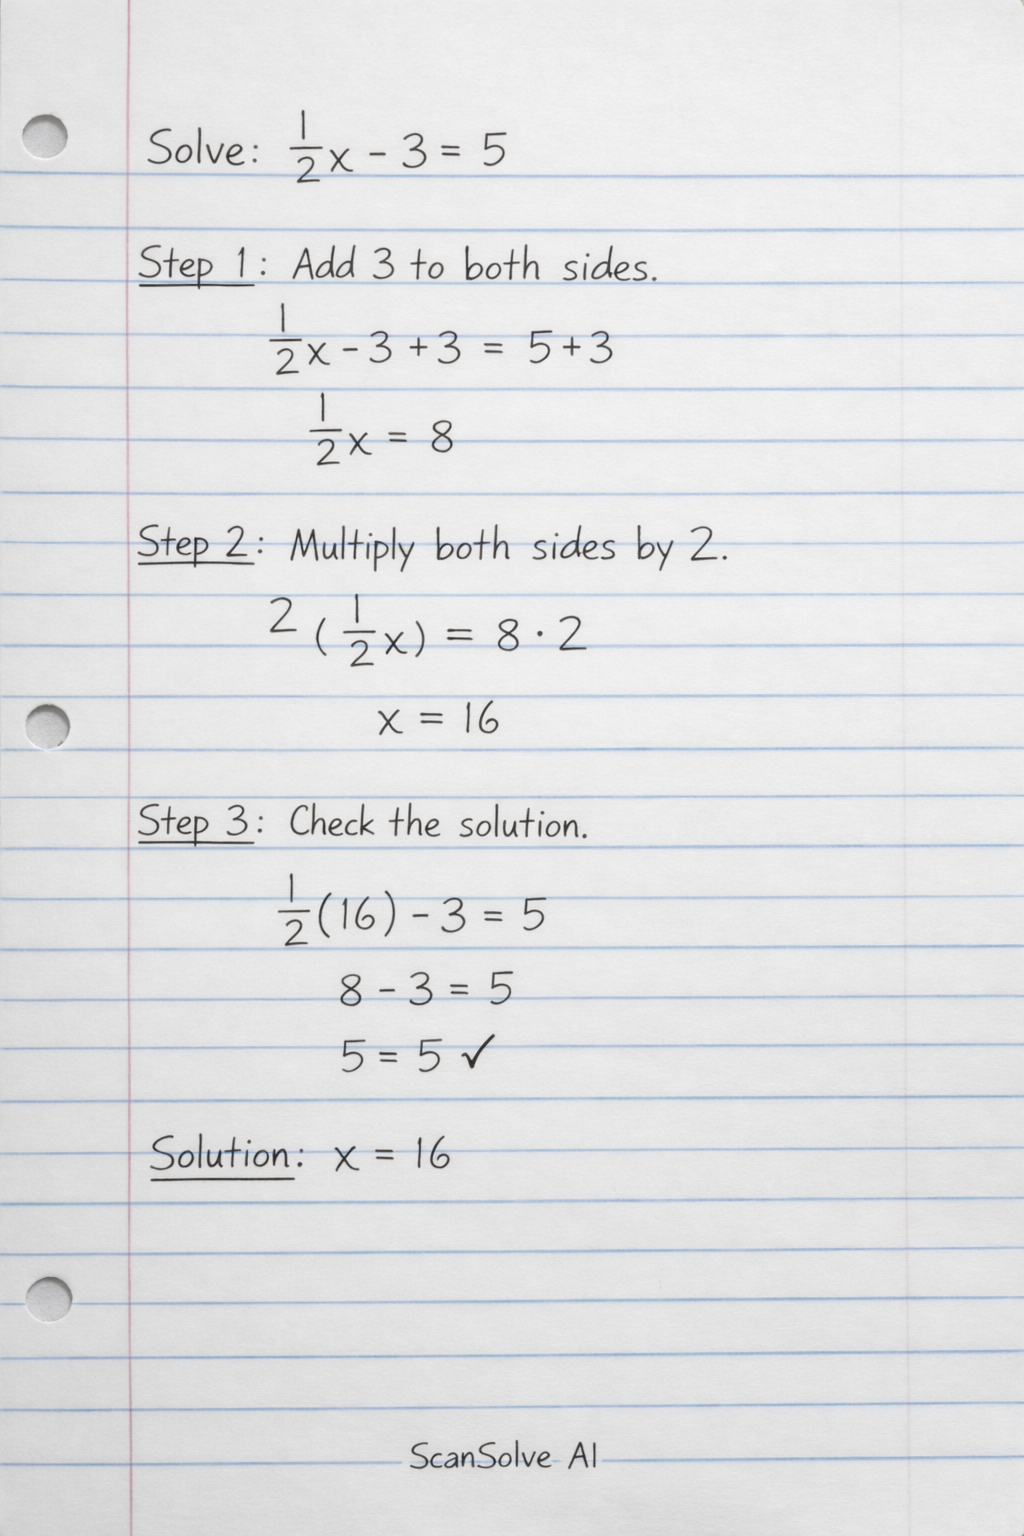 Solve: 1/2x - 3 = 5
Step 1: Add 3 to both sides.
1/2x - 3 + 3 = 5 + 3
1/2x = 8
Step 2: Multiply both sides by 2.
2 (1/2x) = 8 · 2
x = 16
Step 3: Check the solution.
1/2(16) - 3 = 5
8 - 3 = 5
5 = 5 ✓
Solution: x = 16
ScanSolve AI